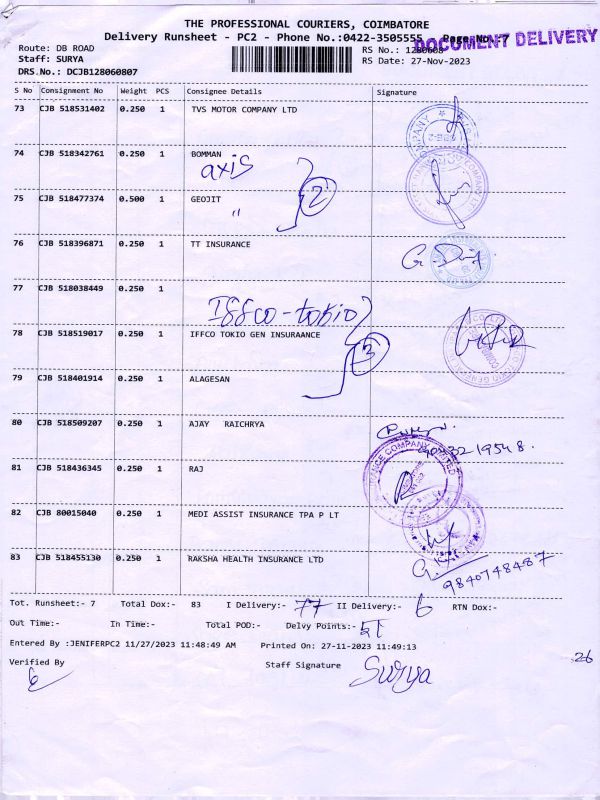 THE PROFESSIONAL COURIERS, COIMBATORE
Delivery Runsheet - PC2 - Phone No.:0422-3505555 Page No.:7
DOCUMENT DELIVERY
Route: DB ROAD RS No.: 1280608
Staff: SURYA RS Date: 27-Nov-2023
DRS No.: DCJB128060807
S No Consignment No Weight PCS Consignee Details Signature
73 CJB 518531402 0.250 1 TVS MOTOR COMPANY LTD
74 CJB 518342761 0.250 1 BOMMAN
axis
75 CJB 518477374 0.500 1 GEOJIT
" 2
76 CJB 518396871 0.250 1 TT INSURANCE
77 CJB 518038449 0.250 1
Iffco-tokio
78 CJB 518519017 0.250 1 IFFCO TOKIO GEN INSURAANCE
3
79 CJB 518401914 0.250 1 ALAGESAN
80 CJB 518509207 0.250 1 AJAY RAICHRYA
81 CJB 518436345 0.250 1 RAJ
82 CJB 80015040 0.250 1 MEDI ASSIST INSURANCE TPA P LT
83 CJB 518455130 0.250 1 RAKSHA HEALTH INSURANCE LTD
9840748487
Tot. Runsheet:- 7 Total Dox:- 83 I Delivery:- 77 II Delivery:- 6 RTN Dox:-
Out Time:- In Time:- Total POD:- Delvy Points:-
Entered By :JENIFERPC2 11/27/2023 11:48:49 AM Printed On: 27-11-2023 11:49:13
Verified By Staff Signature Surya
26